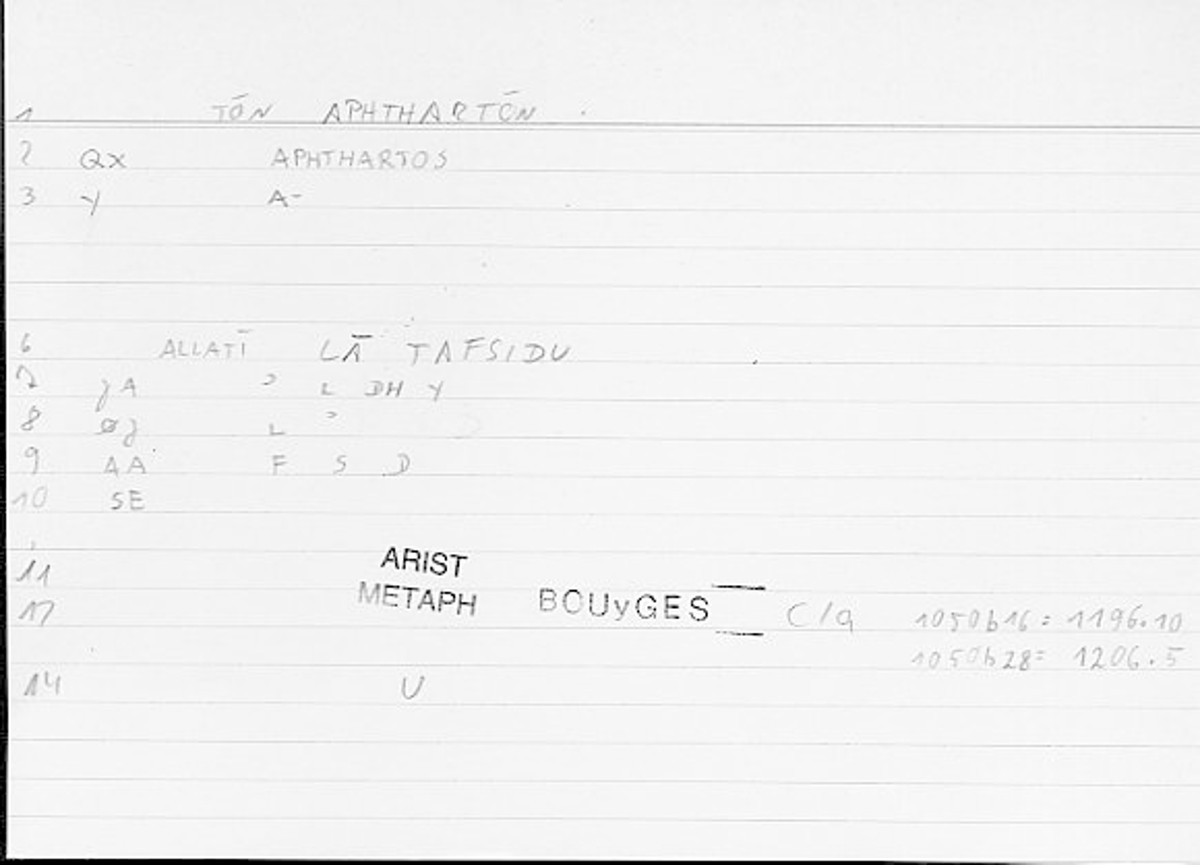 1 TŌN APHTHARTŌN .
2 Qx APHTHARTOS
3 Y A-
6 ALLATĪ LĀ TAFSIDU
7 ȷA ʾ L DH Y
8 øȷ L ʾ
9 AA F S D
10 SE
11 ARIST
12 METAPH BOUyGES C/q 1050b16 = 1196.10
1050b28 = 1206.5
14 U